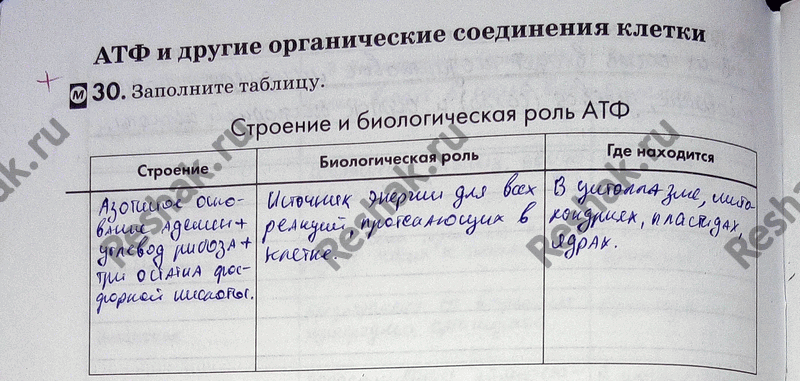 АТФ и другие органические соединения клетки
М 30. Заполните таблицу.
Строение и биологическая роль АТФ
Строение
Биологическая роль
Где находится
Азотистое осно-
вание аденин+
углевод рибоза+
три остатка фос-
форной кислоты.
Источник энергии для всех
реакций, протекающих в
клетке.
В цитоплазме, мито
хондриях, пластидах,
ядрах.
Reshak.ru
Reshak.ru
Reshak.ru
Reshak.ru
Reshak.ru
Reshak.ru